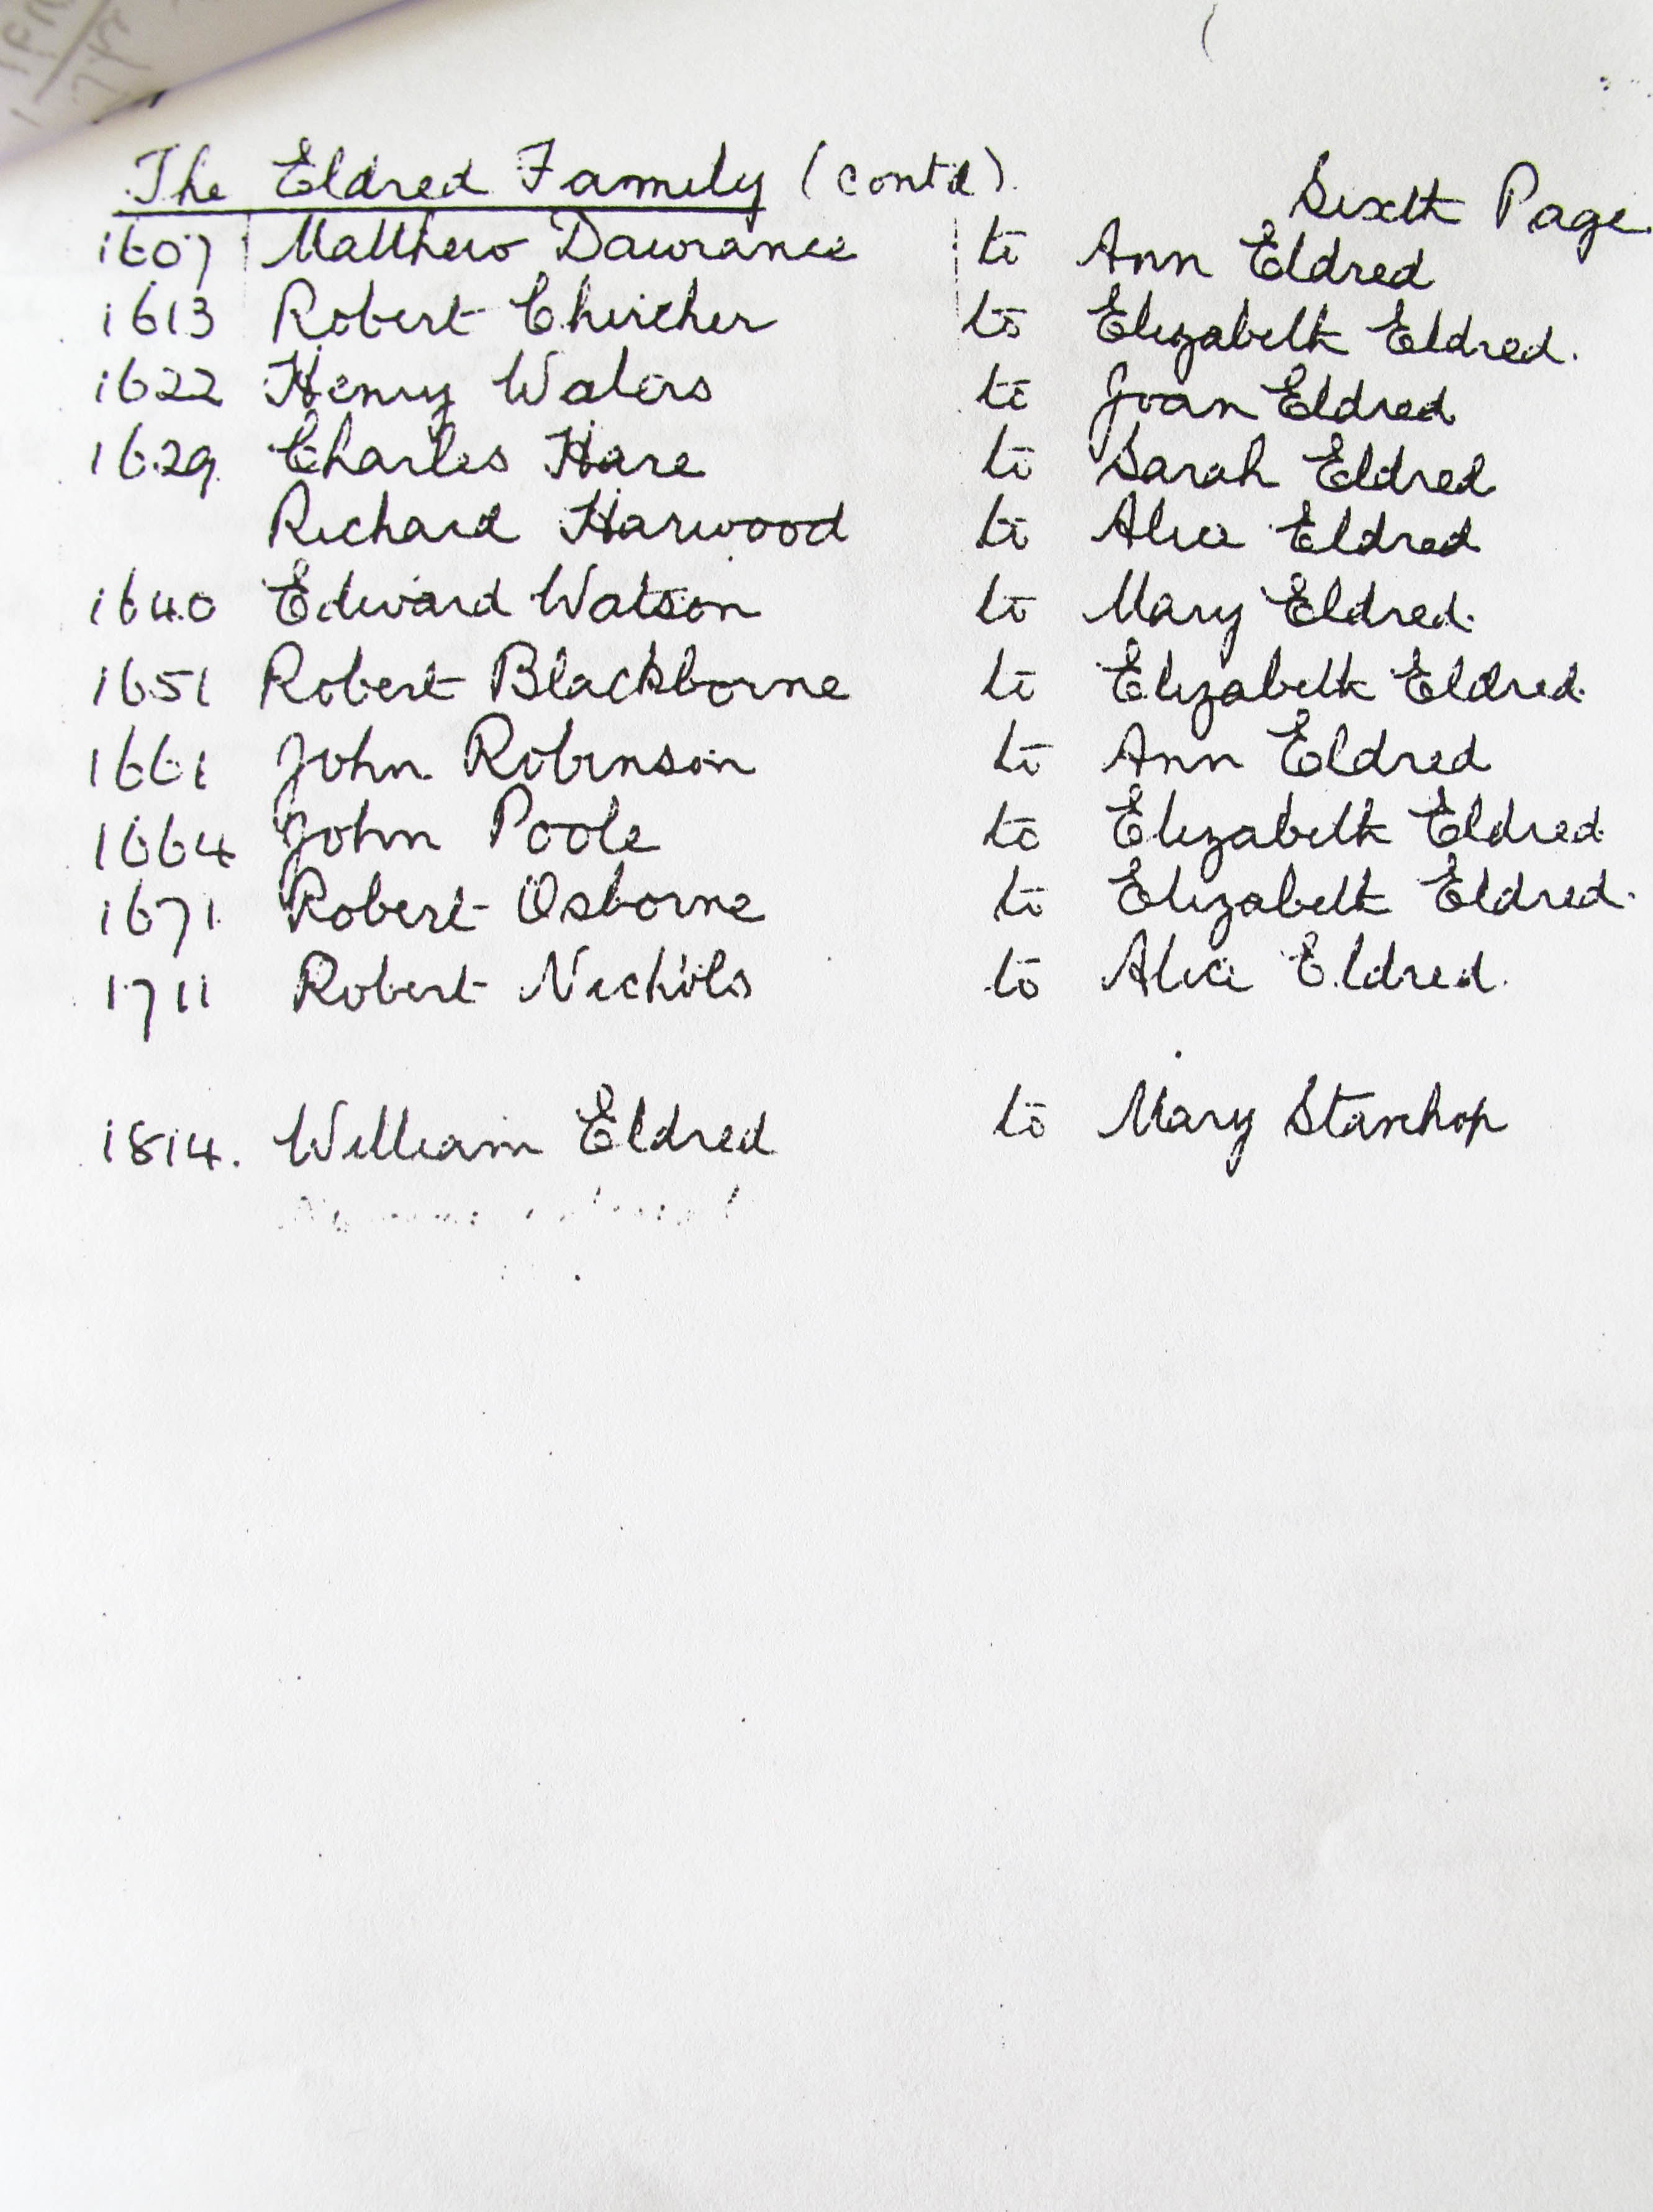 The Eldred Family (contd). Sixth Page.
1607 Matthew Dawrance to Ann Eldred
1613 Robert Chircher to Elizabeth Eldred.
1622 Henry Waters to Joan Eldred
1629 Charles Hare to Sarah Eldred
Richard Harwood to Alice Eldred
1640 Edward Watson to Mary Eldred.
1651 Robert Blackborne to Elizabeth Eldred.
1661 John Robinson to Ann Eldred
1664 John Poole to Elizabeth Eldred
1671 Robert Osborne to Elizabeth Eldred.
1711 Robert Nichols to Alice Eldred.
1814. William Eldred to Mary Stanhop